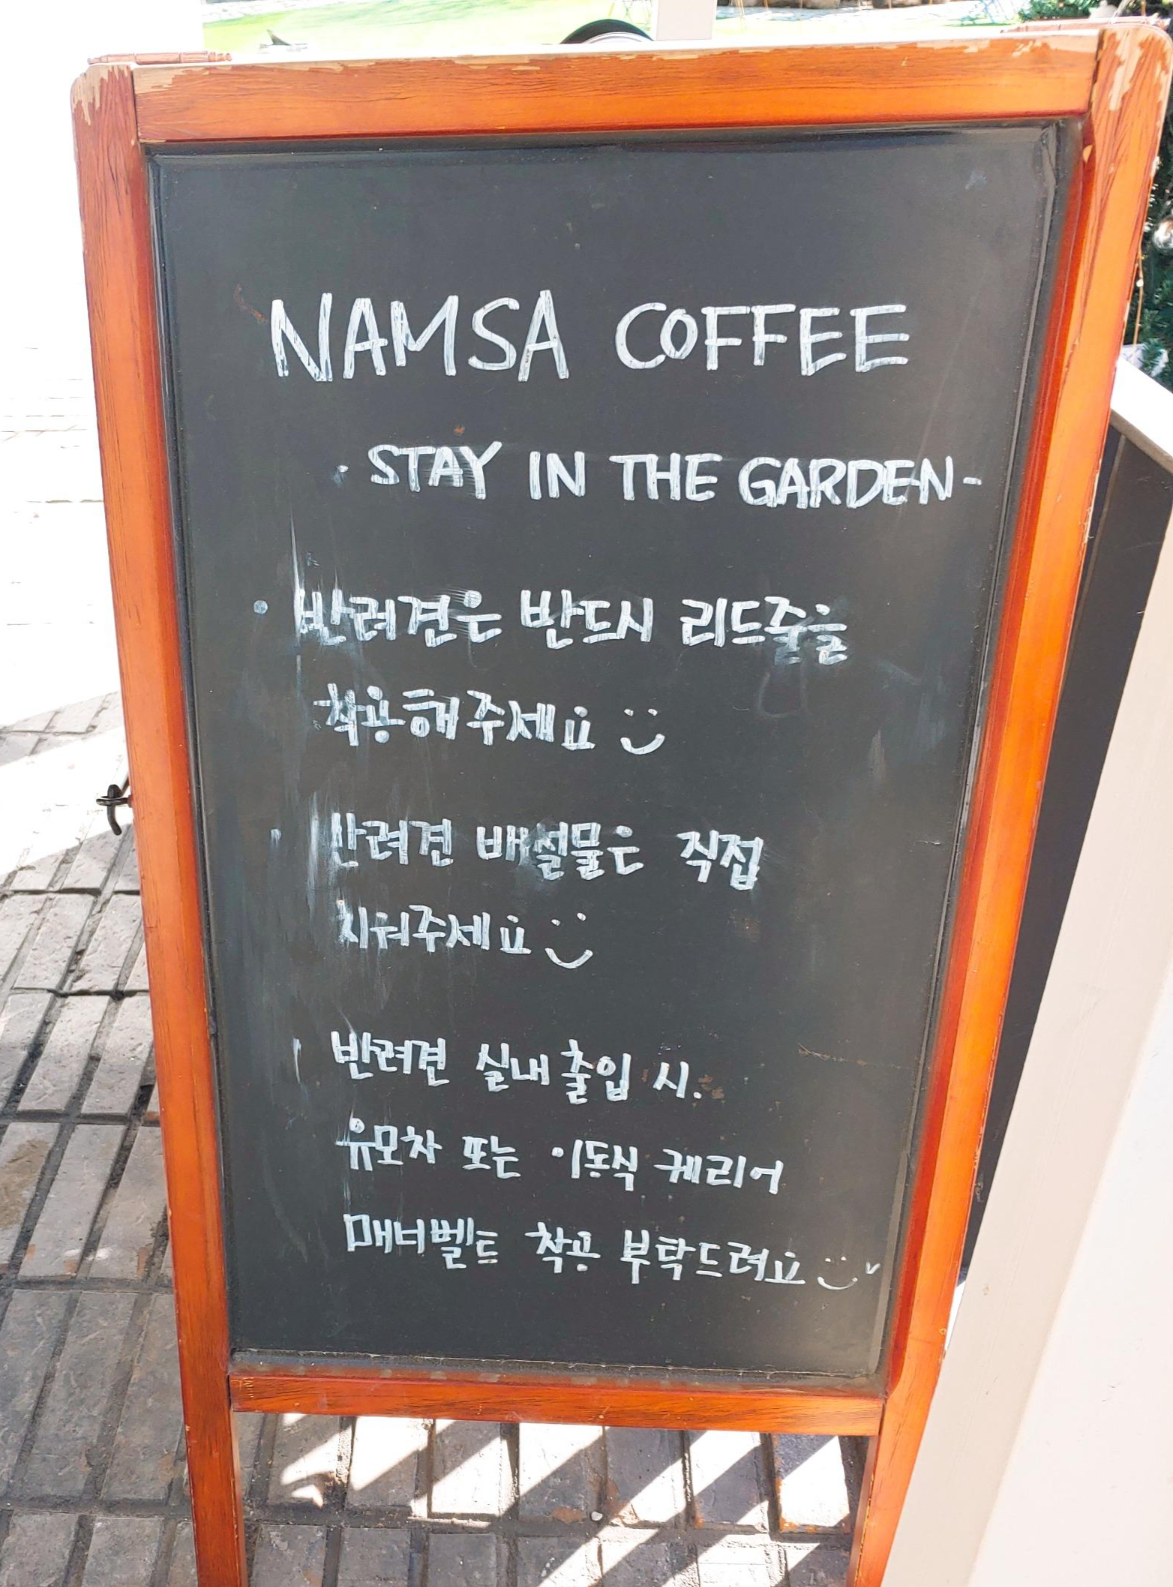 NAMSA COFFEE
· STAY IN THE GARDEN-
· 반려견은 반드시 리드줄을
착용해주세요
· 반려견 배설물은 직접
치워주세요
반려견 실내출입 시.
유모차 또는 이동식 케리어
매너벨트 착용 부탁드려요